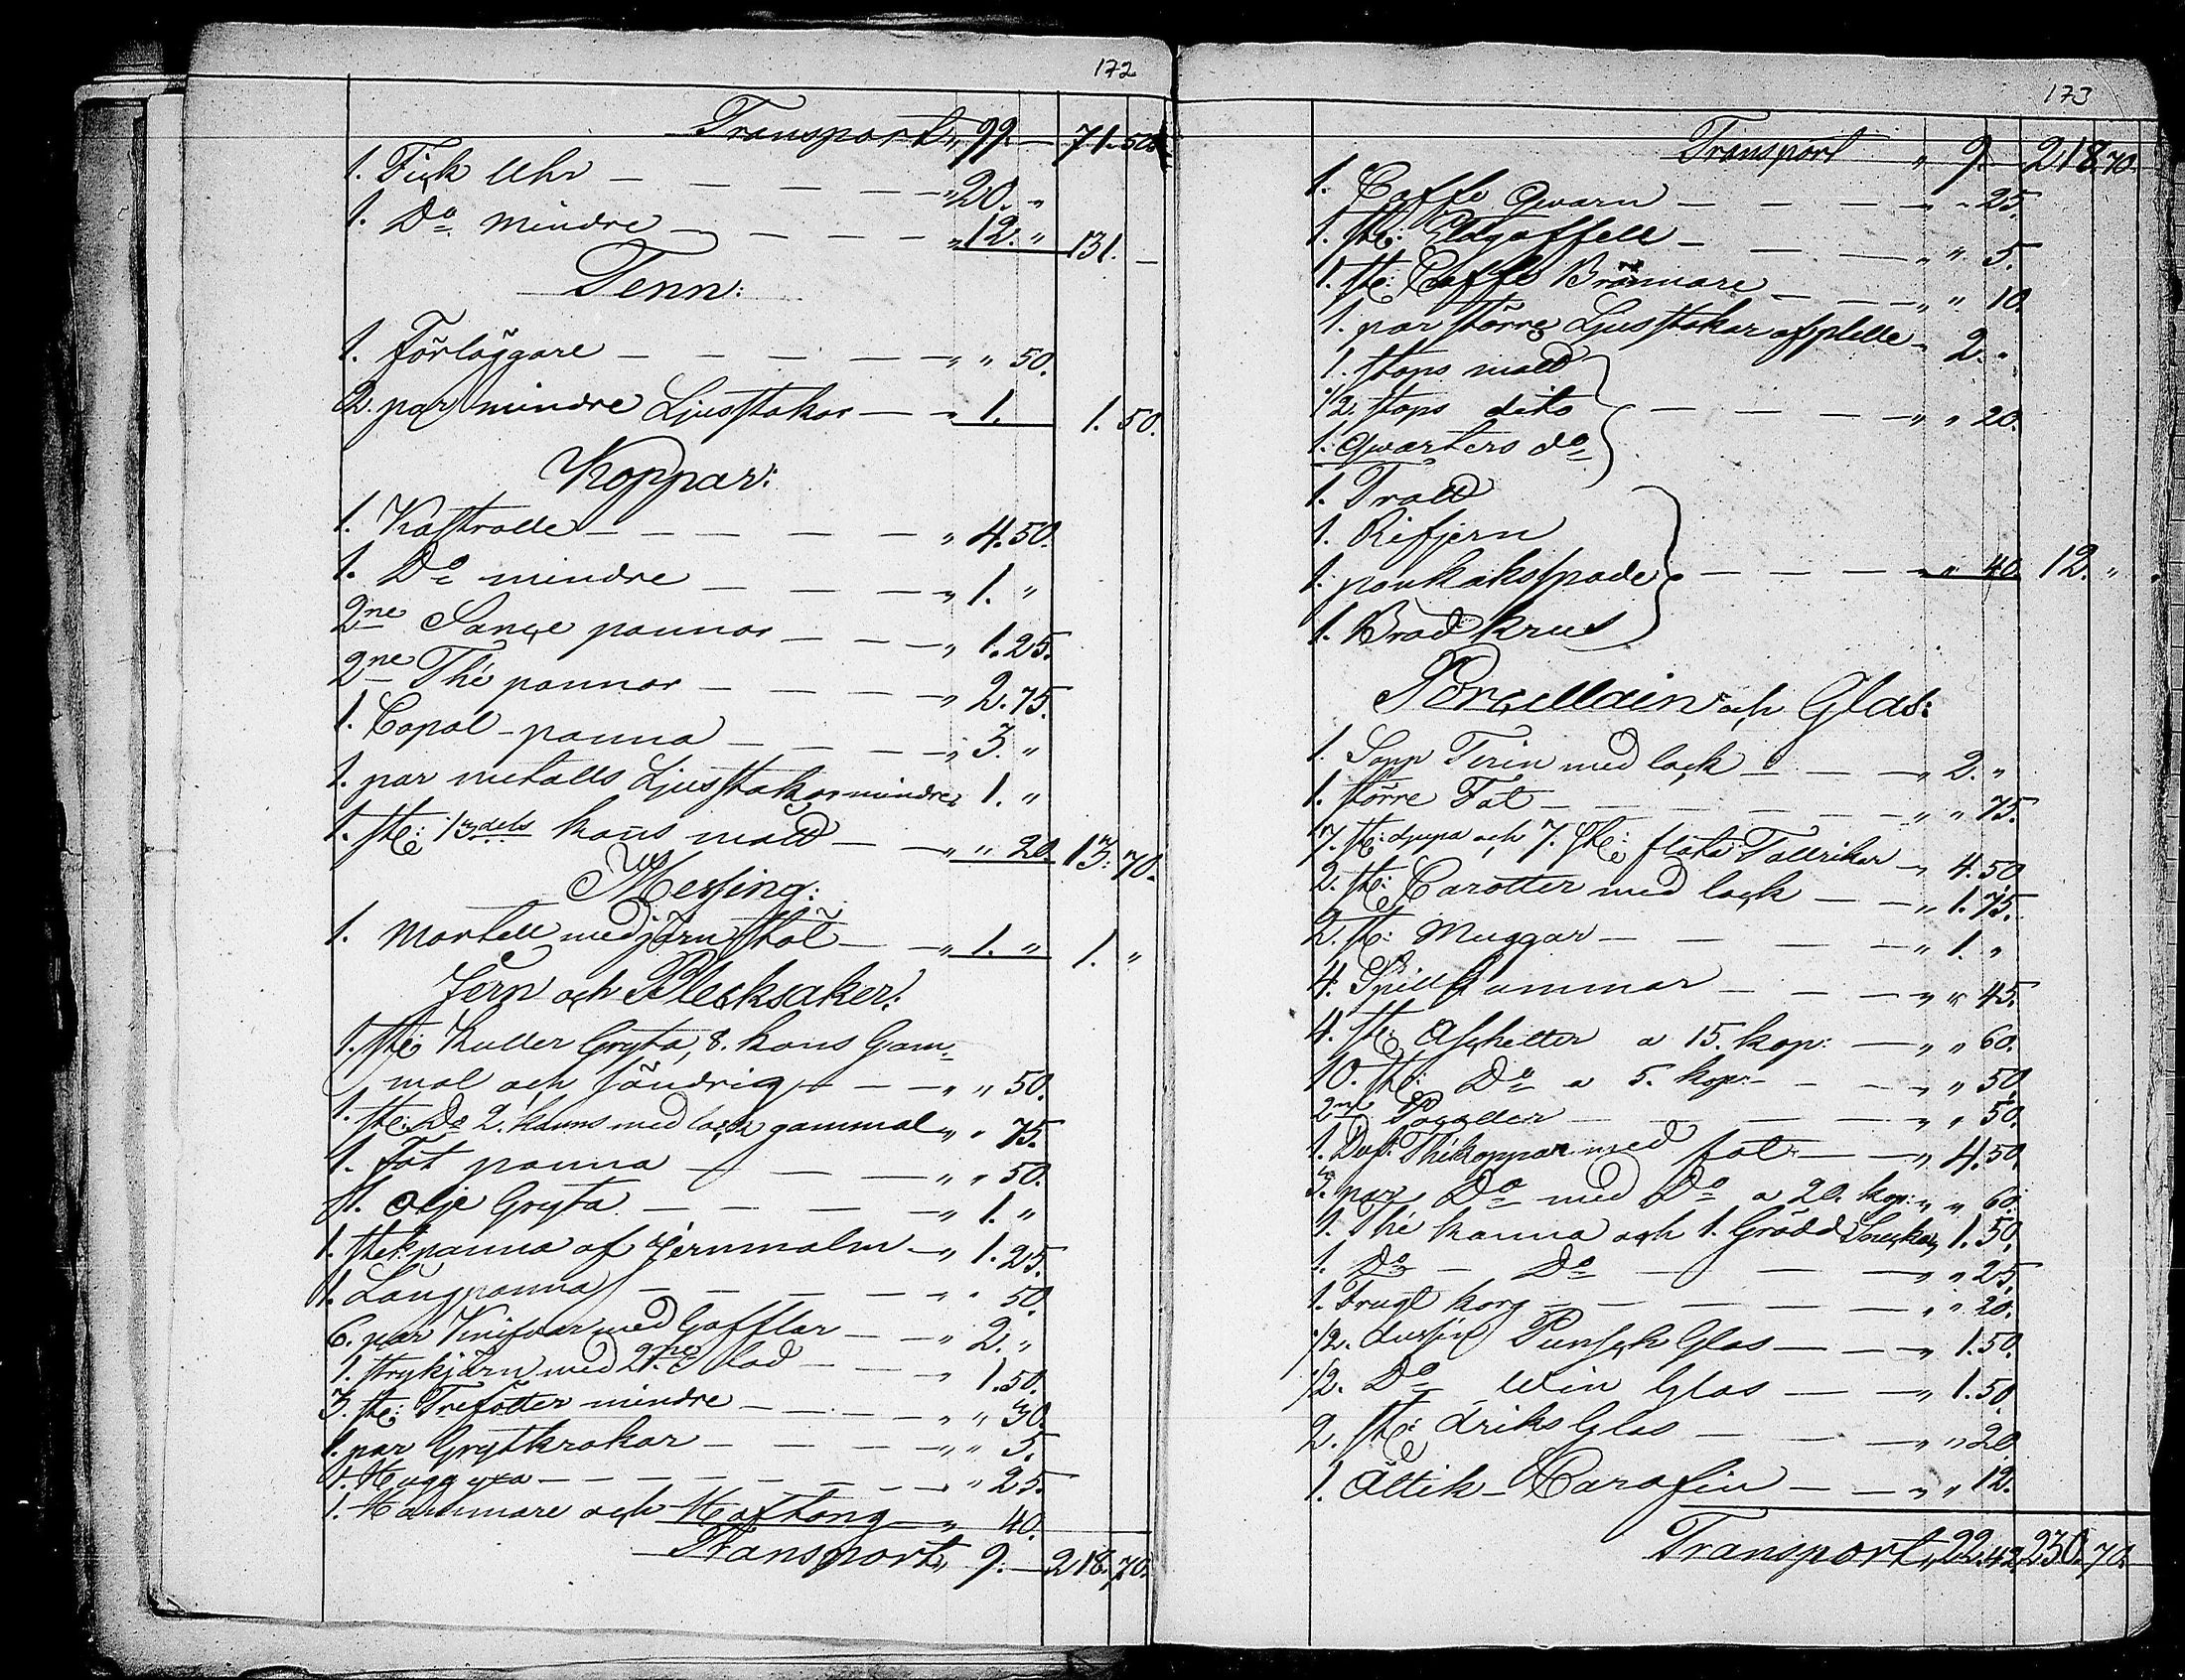 172
Transport „ 99. — 71. 50.
1. Fick Uhr — — — — — „ 20. „
1. Do mindre — — — — „ 12. „ 131. —
Tenn:
1. Förläggare — — — — — „ „ 50.
2. par mindre Ljusstakar — — „ 1. 1. 50.
Koppar:
1. Kastrolle — — — — — „ 4. 50.
1. Do mindre — — — — „ 1. „
2ne Sauçe pannor — — — „ 1. 25.
2ne Thé pannor — — — — „ 2. 75.
1. Copal-panna — — — — „ 3. „
1. par metalls Ljusstakar mindre „ 1. „
1. st: 1/3dels kans mått — — „ „ 20. 13. 70.
Messing:
1. Mortell med järn stöt — — „ 1. „ 1. „
Jern och Blecksaker:
1. st: Kuller Gryta, 8. kans Gam-
mal och söndrig — — — „ „ 50.
1. st: Do 2. kanns med lock gammal „ „ 75.
1. Fat panna — — — „ „ 50.
1. Olje Gryta — — — — „ 1. „
1. stekpanna af Jernmalm — „ 1. 25.
1. Långpanna — — — — — „ „ 50.
6. par Knifvar med Gafflar — — „ 2. „
1. strykjärn med 2ne lod — — — 1. 50.
3. st: Trefötter mindre — — — — „ „ 30.
1. par Grytkrokar — — — — „ „ 5.
1. Hugg yxa — — — — — — „ 25.
1. Hammare och Hoftong — „ 40.
Transport „ 9. — 218. 70.
173
Transport „ 9. — 218. 70.
1. Caffe qvarn — — — — „ „ 25.
1. st: Eldgaffell — — — — „ „ 5.
1. st: Caffe Brännare — — — „ „ 10.
1. par större Ljusstakar af plette „ 2. „
1. stops mått
1/2. stops dito — — — — „ „ 20.
1. qvarters do
1. Tratt
1. Rifjern
1. pankakspade — — — — „ „ 40. 12. „
1. Bräd krus
Porcellain och Glas:
1. Sopp Terin med lock — — — „ 2. „
1. större Fat — — — — — — „ „ 75.
7. st: djupa och 7. st: flata Tallrikar — „ 4. 50.
2. st: Carotter med lock — — „ 1. 75.
2. st: Muggar — — — — — „ 1. „
4. Spillkummar — — — — „ „ 45.
4. st: Aschietter a 15. kop: — „ „ 60.
10. st: Do a 5. kop: — — — „ „ 50.
2ne — — — — „ „ 50.
1. Dus: Thékoppar med fat — — „ 4. 50.
3. par Do med Do a 20. kop: „ „ 60.
1. Thé kanna och 1. Grädd Snucka „ 1. 50.
1. Do — Do — — — „ „ 25.
1. Frugt korg — — — — — „ „ 20.
1/2. dussin Punsch Glas — — — „ 1. 50.
1/2. Do Win Glas — — — „ 1. 50.
2. st: driks Glas — — — „ „ 20.
1. Ättik-Carafin — — — „ „ 12.
Transport „ 22. 42. 230. 70.